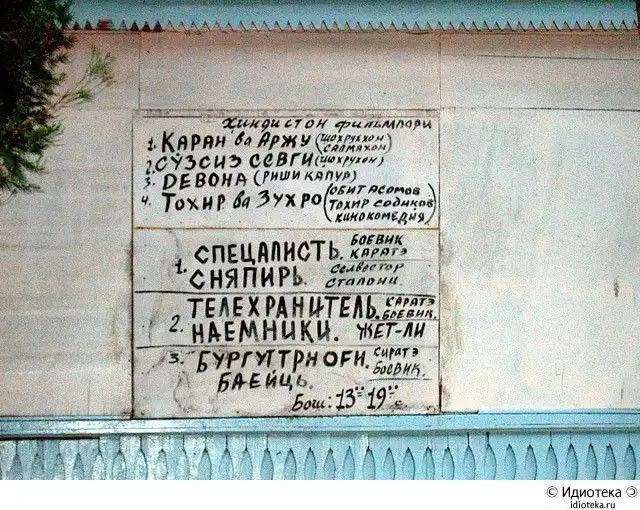 Хиндистон фильмлари
1. КАРАН ва АРЖУ (ШОХРУХХОН
САЛМАХОН
2. СЎЗСИЗ СЕВГИ (ШОХРУХОН)
3. DЕВОНА (РИШИ КАПУР)
4. ТОХИР ва ЗУХРО (ОБИТ АСОМОВ
ТОХИР СОДИКОВ
КИНОКОМЕДИЯ)
1. СПЕЦАЛИСТЬ. БОЕВИК
КАРАТЭ
СНЯПИРЬ. Селвестор
Сталони.
2. ТЕЛЕХРАНИТЕЛЬ. КАРАТЭ
БОЕВИК.
НАЕМНИКИ. ЖЕТ-ЛИ
3. БУРГУТТРНОГИ. СИРАТЭ
БОЕВИК.
БАЕЙЦЬ.
Бош: 13:: 19:: с.
© Идиотека
idioteka.ru